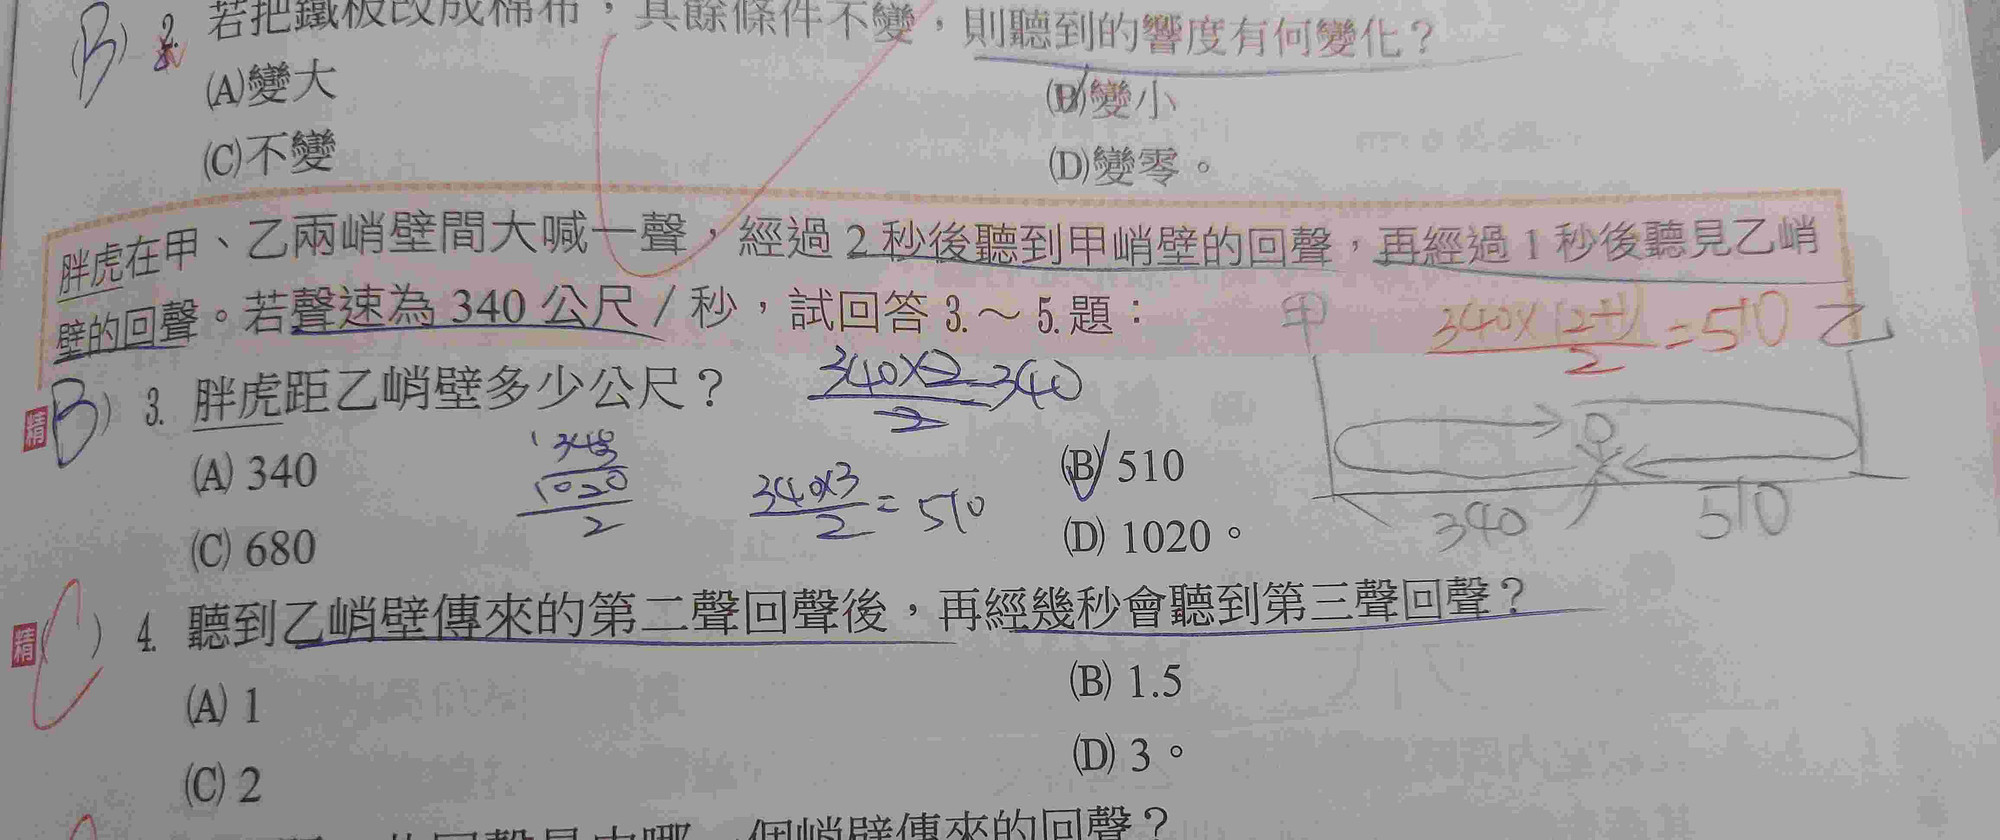 (B) 2. 若把鐵板改成棉布，其餘條件不變，則聽到的響度有何變化？
(A)變大
(B)變小
(C)不變
(D)變零。
胖虎在甲、乙兩峭壁間大喊一聲，經過 2 秒後聽到甲峭壁的回聲，再經過 1 秒後聽見乙峭
壁的回聲。若聲速為 340 公尺／秒，試回答 3.～ 5.題：
甲
340×(2+1)/2=510
乙
精 (B) 3. 胖虎距乙峭壁多少公尺？
340×2/2=340
(A) 340
(B) 510
340×3/2=510
1020/2
(C) 680
(D) 1020。
340
510
精 (C) 4. 聽到乙峭壁傳來的第二聲回聲後，再經幾秒會聽到第三聲回聲？
(A) 1
(B) 1.5
(C) 2
(D) 3。
個峭壁傳來的回聲？